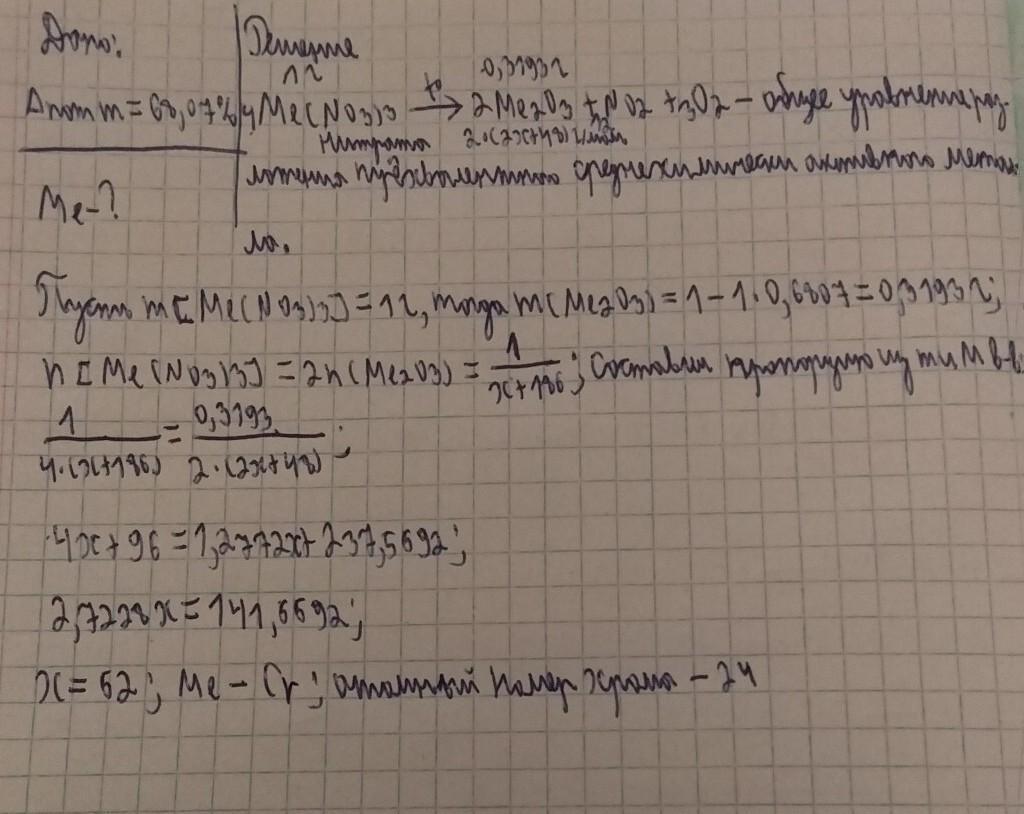 Дано:
Решение
1г
0,3193г
Δпот m = 68,07%
4Me(NO3)3 t°→ 2Me2O3 + NO2 + 3O2 – общее уравнение раз-
12
нитрата
2·(2x+48) г/моль
ложения трёхвалентного среднехимически активного метал-
Me-?
ла.
Пусть m[Me(NO3)3] = 1г, тогда m(Me2O3) = 1 – 1·0,6807 = 0,3193г;
n[Me(NO3)3] = 2n(Me2O3) = 1/(x+186); Составим пропорцию из m и M в-в
1/(4·(x+186)) = 0,3193/(2·(2x+48));
4x+96 = 1,2772x+237,5592;
2,7228x = 141,5592;
x = 52; Me – Cr; атомный номер хрома – 24